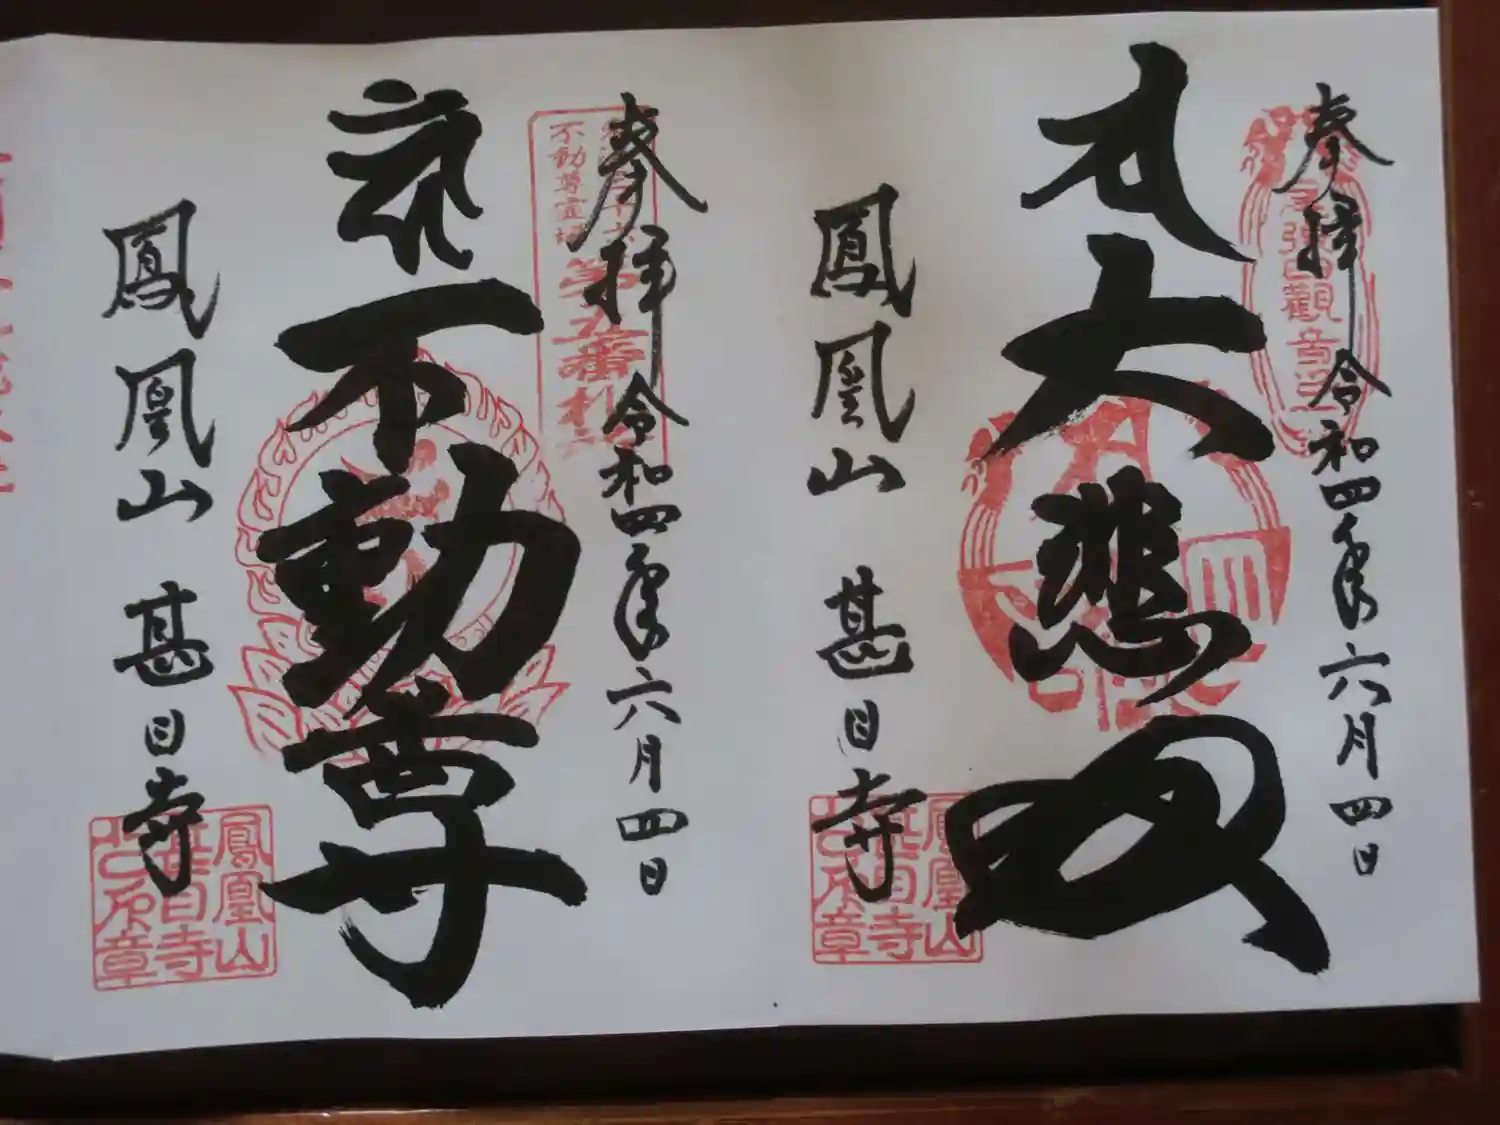 奉拝 令和四年六月四日
尾張四観音
大悲殿
鳳凰山 甚目寺
鳳凰山
甚目寺
之印章
奉拝 令和四年六月四日
不動尊霊場
第五番札所
不動尊
鳳凰山 甚目寺
鳳凰山
甚目寺
之印章